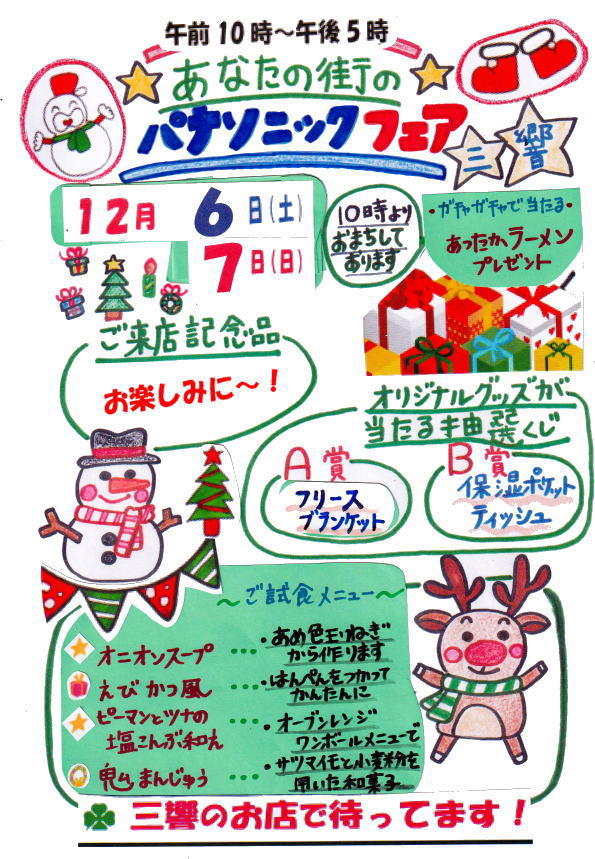 午前10時～午後5時
あなたの街の
パナソニックフェア
三響
12月 6日(土)
7日(日)
10時より
おまちして
おります
・ガチャガチャで当たる・
あったかラーメン
プレゼント
ご来店記念品
お楽しみに～！
オリジナルグッズが
当たる抽選くじ
A賞
フリース
ブランケット
B賞
保湿ポケット
ティッシュ
～ご試食メニュー～
オニオンスープ ・・・ ・あめ色玉ねぎ
から作ります
えびかつ風 ・・・ ・はんぺんをつかって
かんたんに
ピーマンとツナの
塩こんぶ和え ・・・ ・オーブンレンジ
ワンボールメニューで
鬼まんじゅう ・・・ ・サツマイモと小麦粉を
用いた和菓子
三響のお店で待ってます！